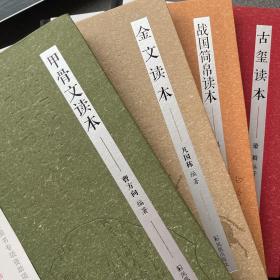 甲骨文读本
曹方向 编著
金文读本
凡国栋 编著
战国简帛读本
古玺读本